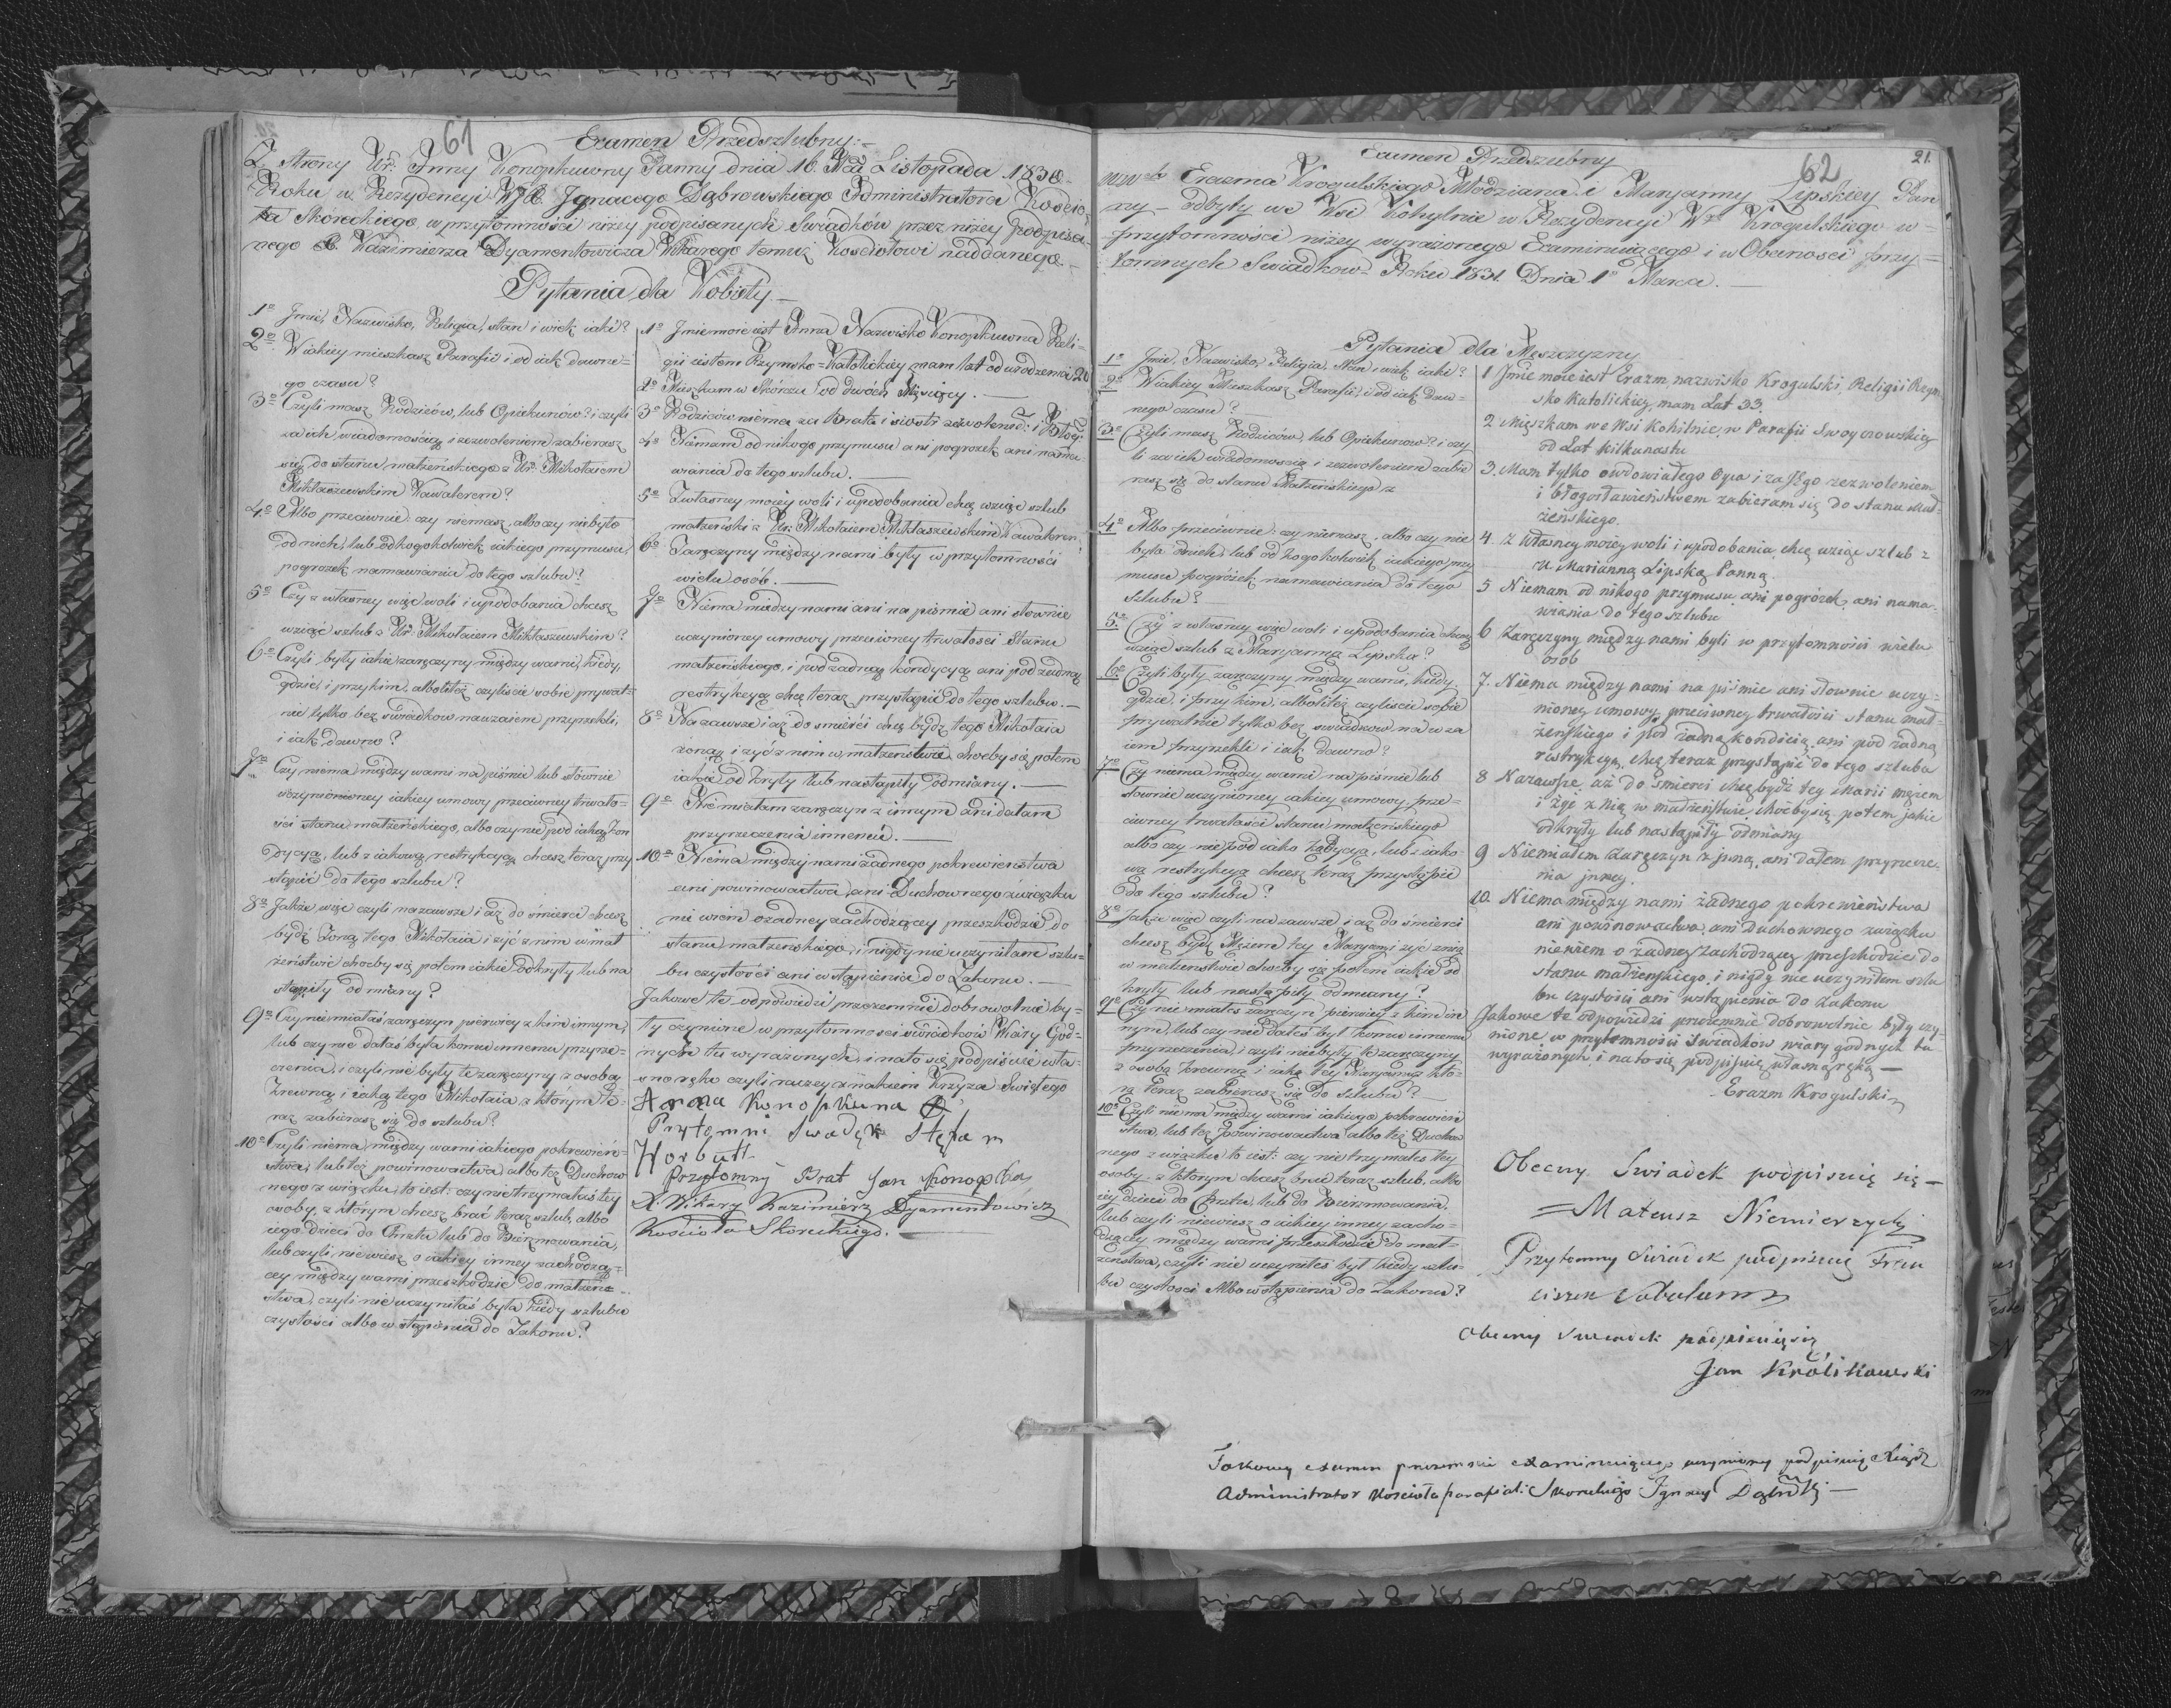 61
Examen Przedszlubny:-
Z Strony Ur: Anny Konopkuwny Panny dnia 16. Mca Listopada 1830-
Roku w Rezydencyi WJX. Jgnacego Dąbrowskiego Administratora Koscio-
ła Skóreckiego w przytomności niżey podpisanych Swiadków przez niżey podpisa-
nego X. Kazimierza Dyamentowicza Wikarego temuż Kosciołowi naddanego.-
Pytania dla Kobiéty.-
1o Jmie, Nazwisko, Religia, stan i wiek iaki?
2o Wiakiey mieszkasz Parafii i od iak dawne-
go czasu?
3o Czyli masz Rodziców, lub Opiekunów? i czyli
za ich wiadomością i zezwoleniem zabierasz
się do stanu małżeńskiego z Ur: Mikołaiem
Mikłaszewskim Kawalerem?
4o Albo przeciwnie czy niemasz, albo czy niebyło
od nich, lub od kogokolwiek iakiego przymusu,
pogrozek namawiania do tego szlubu?
5o Czy z własney więc woli i upodobania chcesz
wziąć szlub z Ur: Mikołaiem Mikłaszewskim?
6o Czyli były iakie zaręczyny między wami, kiedy,
gdzie, i przykim, albolitéż czyliście sobie prywat-
nie tylko bez swiadkow nawzaiem przyrzekli,
i iak dawno?
7o Czy niema między wami na piśmie lub słownie
uczynioney iakiey umowy przeciwney trwało-
ści stanu małżeńskiego, albo czy nie pod iaką kon
dycyą, lub z iakową restrykcyą chcesz teraz przy
stąpić do tego szlubu?
8o Jakże więc czyli nazawsze i aż do śmierci chcesz
bydź żoną tego Mikołaia i żyć z nim w mał
żeństwie choćby się potem iakie odkryły lub na
stąpiły odmiany?
9o Czy nie miałaś zaręczyn pierwiey z kim innym,
lub czy nie dałaś była komu innemu przyrze-
czenia, i czyli nie były te zaręczyny z osobą
krewną i iaką tego Mikołaia z którym te-
raz zabierasz się do szlubu?
10o Czyli niema między wami iakiego pokrewień-
stwa, lub téż powinowactwa albo téż Duchow
nego związku, to iest: czy nie trzymałaś tey
osoby, z którym chcesz brać teraz szlub, albo
iego dzieci do Chrztu lub do Bierzmowania,
lub czyli nie wiesz o iakiey inney zachodzą-
cey między wami przeszkodzie do małżeń-
stwa, czyli nie uczyniłaś była kiedy szlubu
czystości albo wstąpienia do Zakonu?
1o Jmie moie iest Anna Nazwisko Konopkuwna Reli-
gii iestem Rzymsko-Katolickiey mam lat od urodzenia 20
2o Mieszkam w Skórcu od dwóch Miesięcy.-
3o Rodziców niema za Brata i siostr zezwoleniē: i Błog:
4o Niemam od nikogo przymusu ani pogrozek ani nama-
wiania do tego szlubu.
5o Zwłasney moiéy woli i upodobania chcę wziąć szlub
małżeński z Ur: Mikołaiem Mikłaszewskim Kawalerem.
6o Zaręczyny między nami były w przytomności
wielu osób.-
7o Niema między nami ani na piśmie ani słownie
uczynioney umowy przeciwney trwałości stanu
małżeńskiego, i pod żadną kondycyą ani pod żadną
restrykcyą chcę teraz przystąpić do tego szlubu.-
8o Na zawsze i aż do śmierci chcę bydź tego Mikołaia
żoną i żyć z nim w małżeństwie choćby się potem
iakie odkryły lub nastąpiły odmiany.-
9o Nie miałam zaręczyn z innym ani dałam
przyrzeczenia innemu.-
10o Niema między nami żadnego pokrewieństwa
ani powinowactwa, ani Duchownego związku
nie wiém o żadney zachodzącey przeszkodzie do
stanu małżeńskiego, i nigdy nie uczyniłam szlu-
bu czystości ani wstąpienia do Zakonu.-
Jakowe te odpowiedzi przezemnie dobrowolnie by-
ły czynione w przytomności swiadkow Wiary God-
nych tu wyrażonych, i nato się podpisuię wła-
snoręko czyli raczey znakiem Krzyża Swiętego
Anna Konopkuna
Przytomni Swadęk Stęfa n
Horbutt
Przytomny Brat Jan Konopka
X. Wikary Kazimierz Dyamentowicz
Kościoła Skoreckiego.
62
21.
Examen Przedszubny
Erazma Krogulskiego Młodziana i Maryanny Lipskiey Pan
ny - odbyty we Wsi Kohylnie w Rezydencyi W Krogulskiego w-
przytomności niżey wyrażonego Examinuiącego i w Obecności przy-
tomnych Swiadkow Roku 1831. Dnia 1o Marca.-
Pytania dla Męszczyzny
1o Jmie, Nazwisko, Religia, stan i wiek iaki?
2o Wiakiey Mieszkasz Parafii, i od iak daw-
nego czasu?
3o Czyli masz Rodziców, lub Opiekunow? i czy
li za ich wiadomoscią i zezwoleniem zabie
rasz się do stanu Małżeńskiego z
4o Albo przeciwnie: czy niemasz, albo czy nie
było od nich, lub od kogokolwiek iakiego przy
musu pogróżek namawiania do tego
szlubu?
5o Czy z własney więc woli i upodobania chcesz
wziąć szlub z Maryanną Lipską?
6o Czyli były zaręczyny między wami, kiedy,
gdzie, i przy kim, albolitéż czyliscie sobie
prywatnie tylko bez swiadkow na wza
iem przyrzekli i iak dawno?
7o Czy niema między wami na piśmie lub
słownie uczynioney iakiey umowy prze-
ciwney trwałości stanu małżeńskiego
albo czy nie pod iako kądycyą, lub z iako-
wą restrykcyą chcesz teraz przystąpić
do tego szlubu?
8o Jakże więc czyli na zawsze i aż do śmierci
chcesz bydź Mężem tey Maryanny i żyć z nią
w małżenstwie choćby się potem iakie od
kryły lub nastąpiły odmiany?
9o Czy nie miałeś zaręczyn pierwiey z kim in
nym, lub czy nie dałeś był komu innemu
przyrzeczenia, i czyli niebyły te zaręczyny
z osobą krewną i iaką tey Maryanny z któ-
rą teraz zabierasz się do szlubu?
10o Czyli niema między wami iakiego pokrewień
stwa, lub téż powinowactwa albo téż Duchow
nego związku to iest: czy nie trzymałeś tey
osoby z którym chcesz brać teraz szlub, albo
iey dzieci do Chrztu, lub do Bierzmowania,
lub czyli niewiesz o iakiey inney zacho-
dzącey między wami przeszkodzie do mał-
żeństwa, czyli nie uczyniłeś był kiedy szlu-
bu czystości Albo wstąpienia do Zakonu?
1 Jmie moie iest Erazm, nazwisko Krogulski, Religii Rzym-
sko Katolickiey, mam Lat 33.
2 Mięszkam we Wsi Kohilnie, w Parafii Swoyczowskiey
od Lat kilkunastu
3. Mam tylko owdowiałego Oyca i za Jego zezwoleniem
i błogosławieństwem zabieram się do stanu Mał-
żeńskiego.
4 Z Własney moiey woli i upodobania, chcę wziąć szlub z
U Marianną Lipską Panną.
5 Niemam od nikogo przymusu ani pogrózek, ani nama-
wiania do tego szlubu
6 Zaręczyny między nami byli w przytomności wielu
osób
7. Niema między nami na piśmie ani słownie uczy-
nioney umowy, przeciwney trwałości stanu mał-
żeńskiego i pod żadną kondicią, ani pod żadną
ristrykcyą, chcę teraz przystąpić do tego szluba
8 Nazawsze, aż do śmierci chcę bydź tey Marii mężem
i żyć z Nią w małżeństwie, choćby się potem jakie
odkryły lub nastąpiły odmiany
9 Niemiałem Zaręczyn z jnną, ani Dałem przyrzecze-
nia jnney.
10. Niema między nami żadnego pokrewieństwa
ani powinowactwa, ani Duchownego związku
niewiem o żadney zachodzącey przeszkodzie do
stanu małżeńskiego, i nigdy nie uczyniłem szlu
bu czystości ani wstąpienia do Zakonu
Jakowe te odpowiedzi przezemnie dobrowolnie były czy-
nione w przytomności swiadkow wiary godnych tu
wyrażonych, i nato się podpisuię własną ręką -
Erazm Krogulski
Obecny Swiadek podpisuię się -
Mateusz Niemierzycki
Przytomny Swiadek podpisuię Fran
ciszek
Obecny Swiadek podpisuię się
Jan Królikowski
Takowy examen przezemnie examinuiącego uczyniony podpisuię Xiądz
Administrator Kościoła parafial: Skoreckiego Jgnacy Dąbrski -